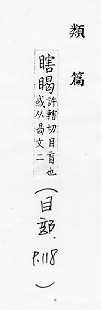 類篇
瞎䁍許轄切目盲也
或从曷文二
(目部, P.118)